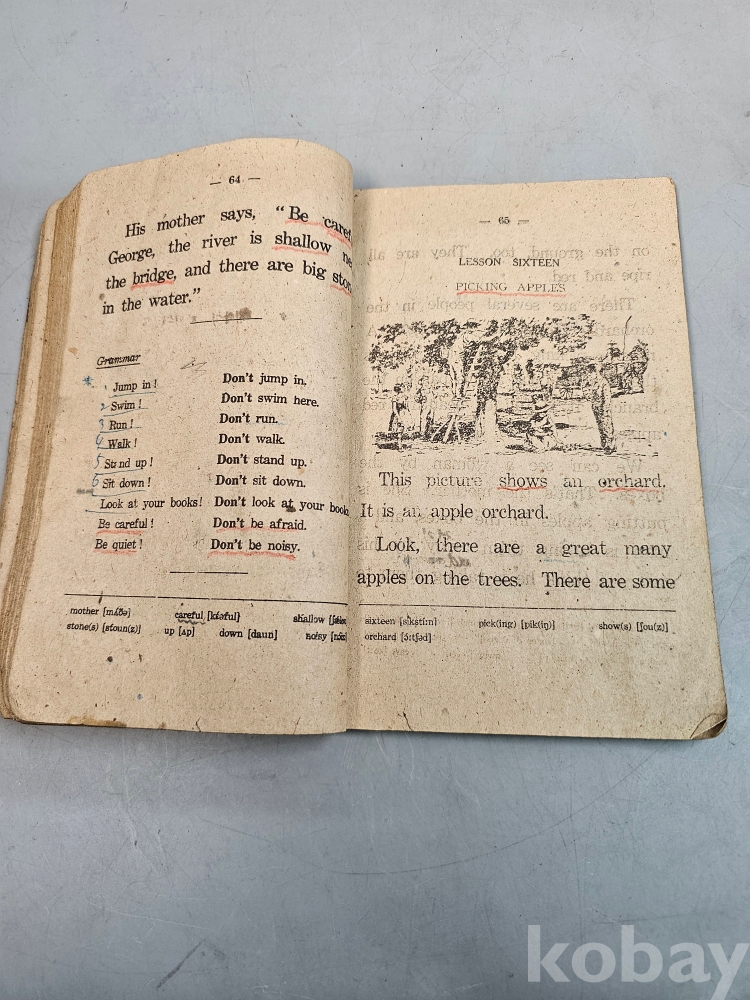 — 64 —
His mother says, “Be
George, the river is shallow
the bridge, and there are big
in the water.”
Grammar
Jump in! Don't jump in.
2 Swim! Don't swim here.
3 Run! Don't run.
4 Walk! Don't walk.
5 Stand up! Don't stand up.
6 Sit down! Don't sit down.
Look at your books! Don't look at your
Be careful! Don't be afraid.
Be quiet! Don't be noisy.
mother [mʌ́ðə] careful shallow
stone(s) [stoun(z)] up [ʌp] down [daun] noisy
— 65 —
LESSON SIXTEEN
PICKING APPLES
This picture shows an orchard.
It is an apple orchard.
Look, there are a great many
apples on the trees. There are some
sixteen pick(ing) [pik(iŋ)] show(s) [ʃou(z)]
orchard [ɔ́:tʃəd]
kobay